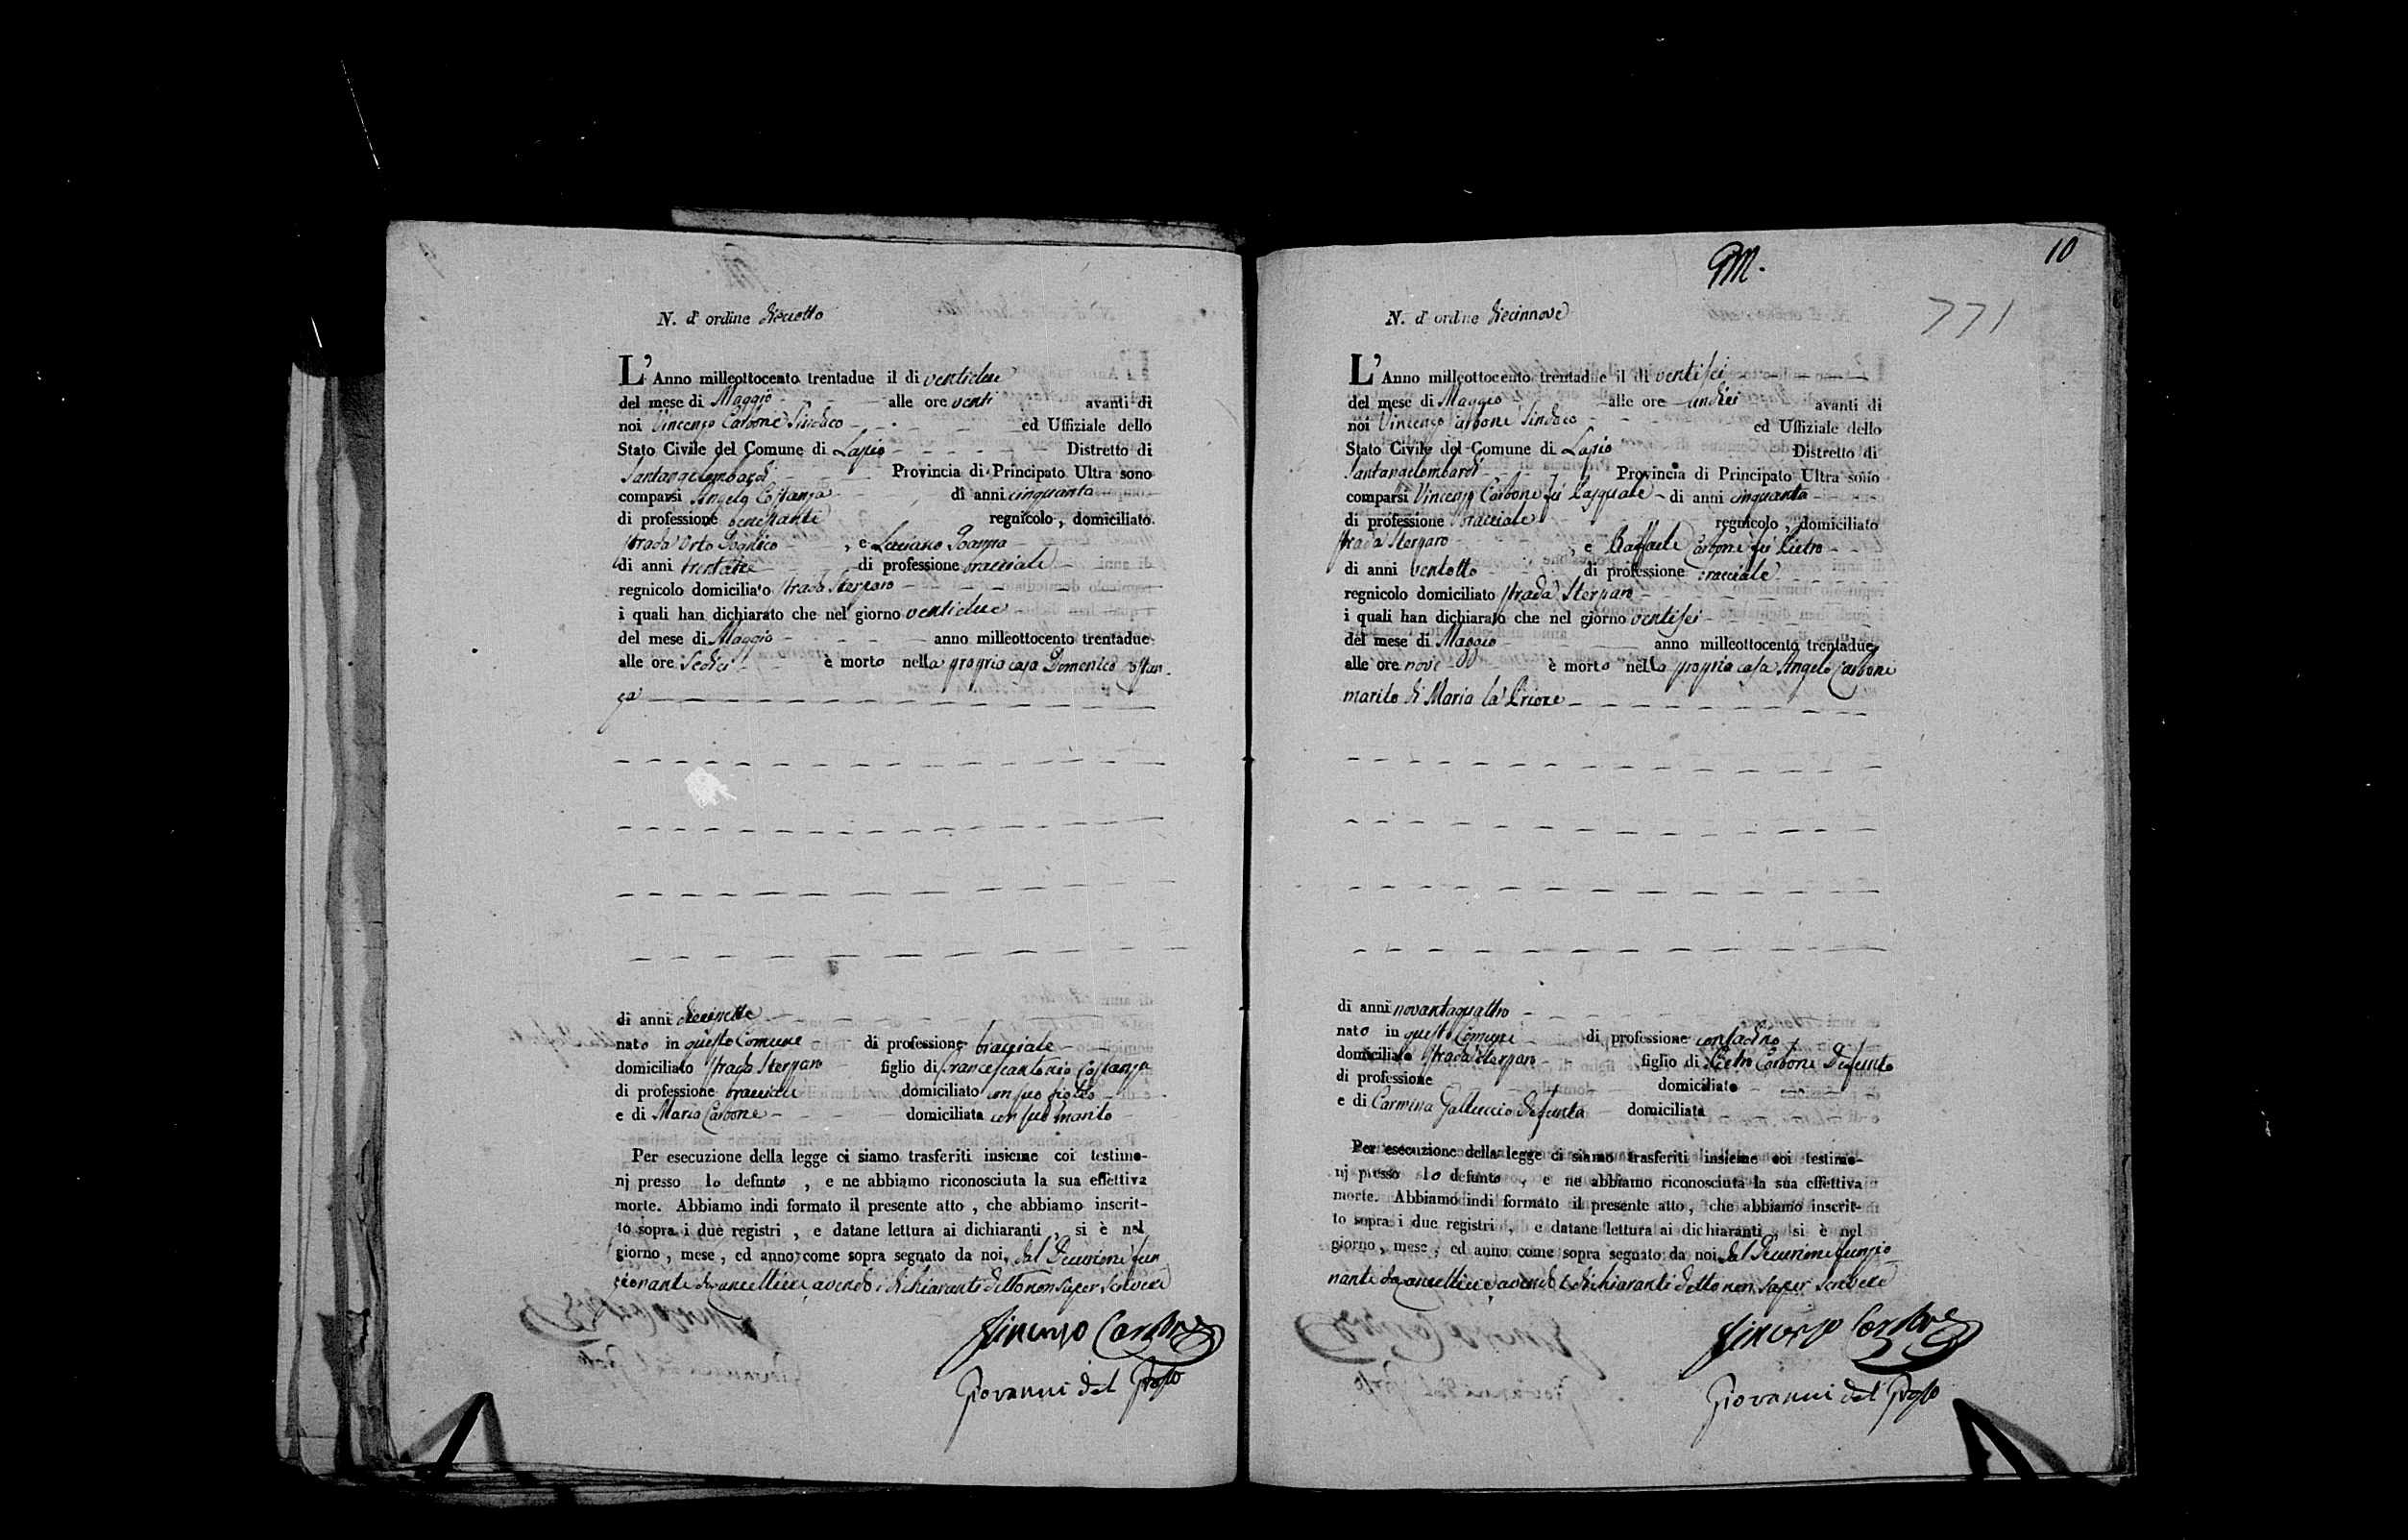 N. d' ordine dieciotto
L' Anno milleottocento trentadue il di ventidue
del mese di Maggio alle ore venti avanti di
noi Vincenzo Carbone Sindaco ed Uffiziale dello
Stato Civile del Comune di Lapio Distretto di
Santangelombardi Provincia di Principato Ultra sono
comparsi Angelo Costanza di anni cinquanta
di professione regnicolo, domiciliato
strada Orto , e Luciano
di anni di professione bracciale
regnicolo domiciliato strada Sterparo
i quali han dichiarato che nel giorno ventidue
del mese di Maggio anno milleottocento trentadue
alle ore sedici è morto nella propria casa Domenico Costan
za
di anni diecisette
nato in questo Comune di professione bracciale
domiciliato strada Sterparo figlio di Francescantonio Costanza
di professione bracciale domiciliato con suo figlio
e di Maria Carbone domiciliata con suo marito
Per esecuzione della legge ci siamo trasferiti insieme coi testimo-
nj presso lo defunto , e ne abbiamo riconosciuta la sua effettiva
morte. Abbiamo indi formato il presente atto , che abbiamo inscrit-
to sopra i due registri , e datane lettura ai dichiaranti , si è nel
giorno , mese , ed anno come sopra segnato da noi, dal Decurione fun
zionante da cancelliere, avendo i dichiaranti detto non saper scrivere
Vincenzo Carbone
Giovanni del Grosso
10
771
N. d' ordine diecinnove
L' Anno milleottocento trentadue il di ventisei
del mese di Maggio alle ore undici avanti di
noi Vincenzo Carbone Sindaco ed Uffiziale dello
Stato Civile del Comune di Lapio Distretto di
Santangelombardi Provincia di Principato Ultra sono
comparsi Vincenzo Carbone fu Pasquale di anni cinquanta
di professione bracciale regnicolo , domiciliato
strada Sterparo , e Raffaele Carbone fu Pietro
di anni ventotto di professione bracciale
regnicolo domiciliato strada Sterparo
i quali han dichiarato che nel giorno ventisei
del mese di Maggio anno milleottocento trentadue
alle ore nove è morto nella propria casa Angelo Carbone
marito di Maria la Priore
di anni novantaquattro
nato in questo Comune di professione contadino
domiciliato strada Sterparo figlio di Pietro Carbone Defunto
di professione domiciliato
e di Carmina Galluccio defunta domiciliata
Per esecuzione della legge ci siamo trasferiti insieme coi testimo-
nj presso lo defunto , e ne abbiamo riconosciuta la sua effettiva
morte. Abbiamo indi formato il presente atto , che abbiamo inscrit-
to sopra i due registri , e datane lettura ai dichiaranti , si è nel
giorno , mese , ed anno come sopra segnato da noi, dal Decurione funzio
nante da cancelliere, avendo i dichiaranti detto non saper scrivere
Vincenzo Carbone
Giovanni del Grosso